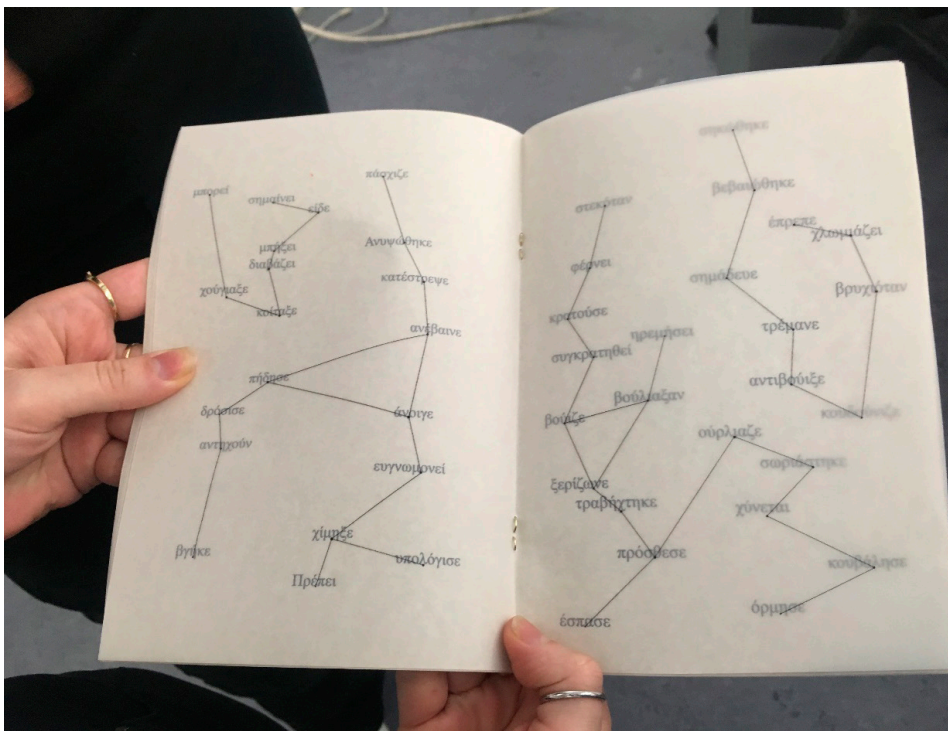 μπορεί
σημαίνει
είδε
μπήξει
διαβάζει
χούγιαξε
κοίταξε
πάσχιζε
Ανυψώθηκε
κατέστρεψε
ανέβαινε
πήδησε
δρόσισε
άνοιγε
αντηχούν
ευγνωμονεί
χίμηξε
βγήκε
υπολόγισε
Πρέπει
σηκώθηκε
βεβαιώθηκε
στεκόταν
έπρεπε
χλωμιάζει
φέρνει
σημάδευε
βρυχιόταν
κρατούσε
τρέμανε
ηρεμήσει
συγκρατηθεί
αντιβούιξε
βούλιαξαν
κουδούνιζε
βούιζε
ούρλιαζε
σωριάστηκε
ξερίζωνε
τραβήχτηκε
χύνεται
πρόσθεσε
κουβάλησε
όρμησε
έσπασε